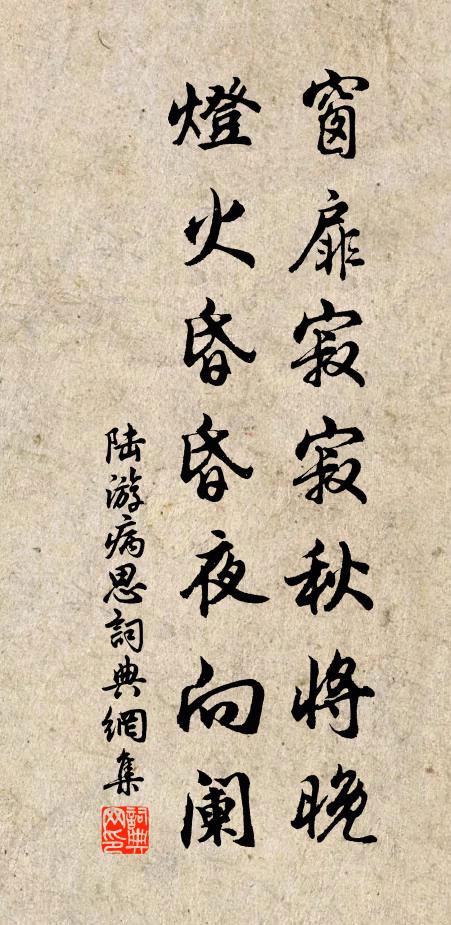 窗扉寂寂秋将晚
燈火昏昏夜向阑
陆游病思詞典網集
詞典网印